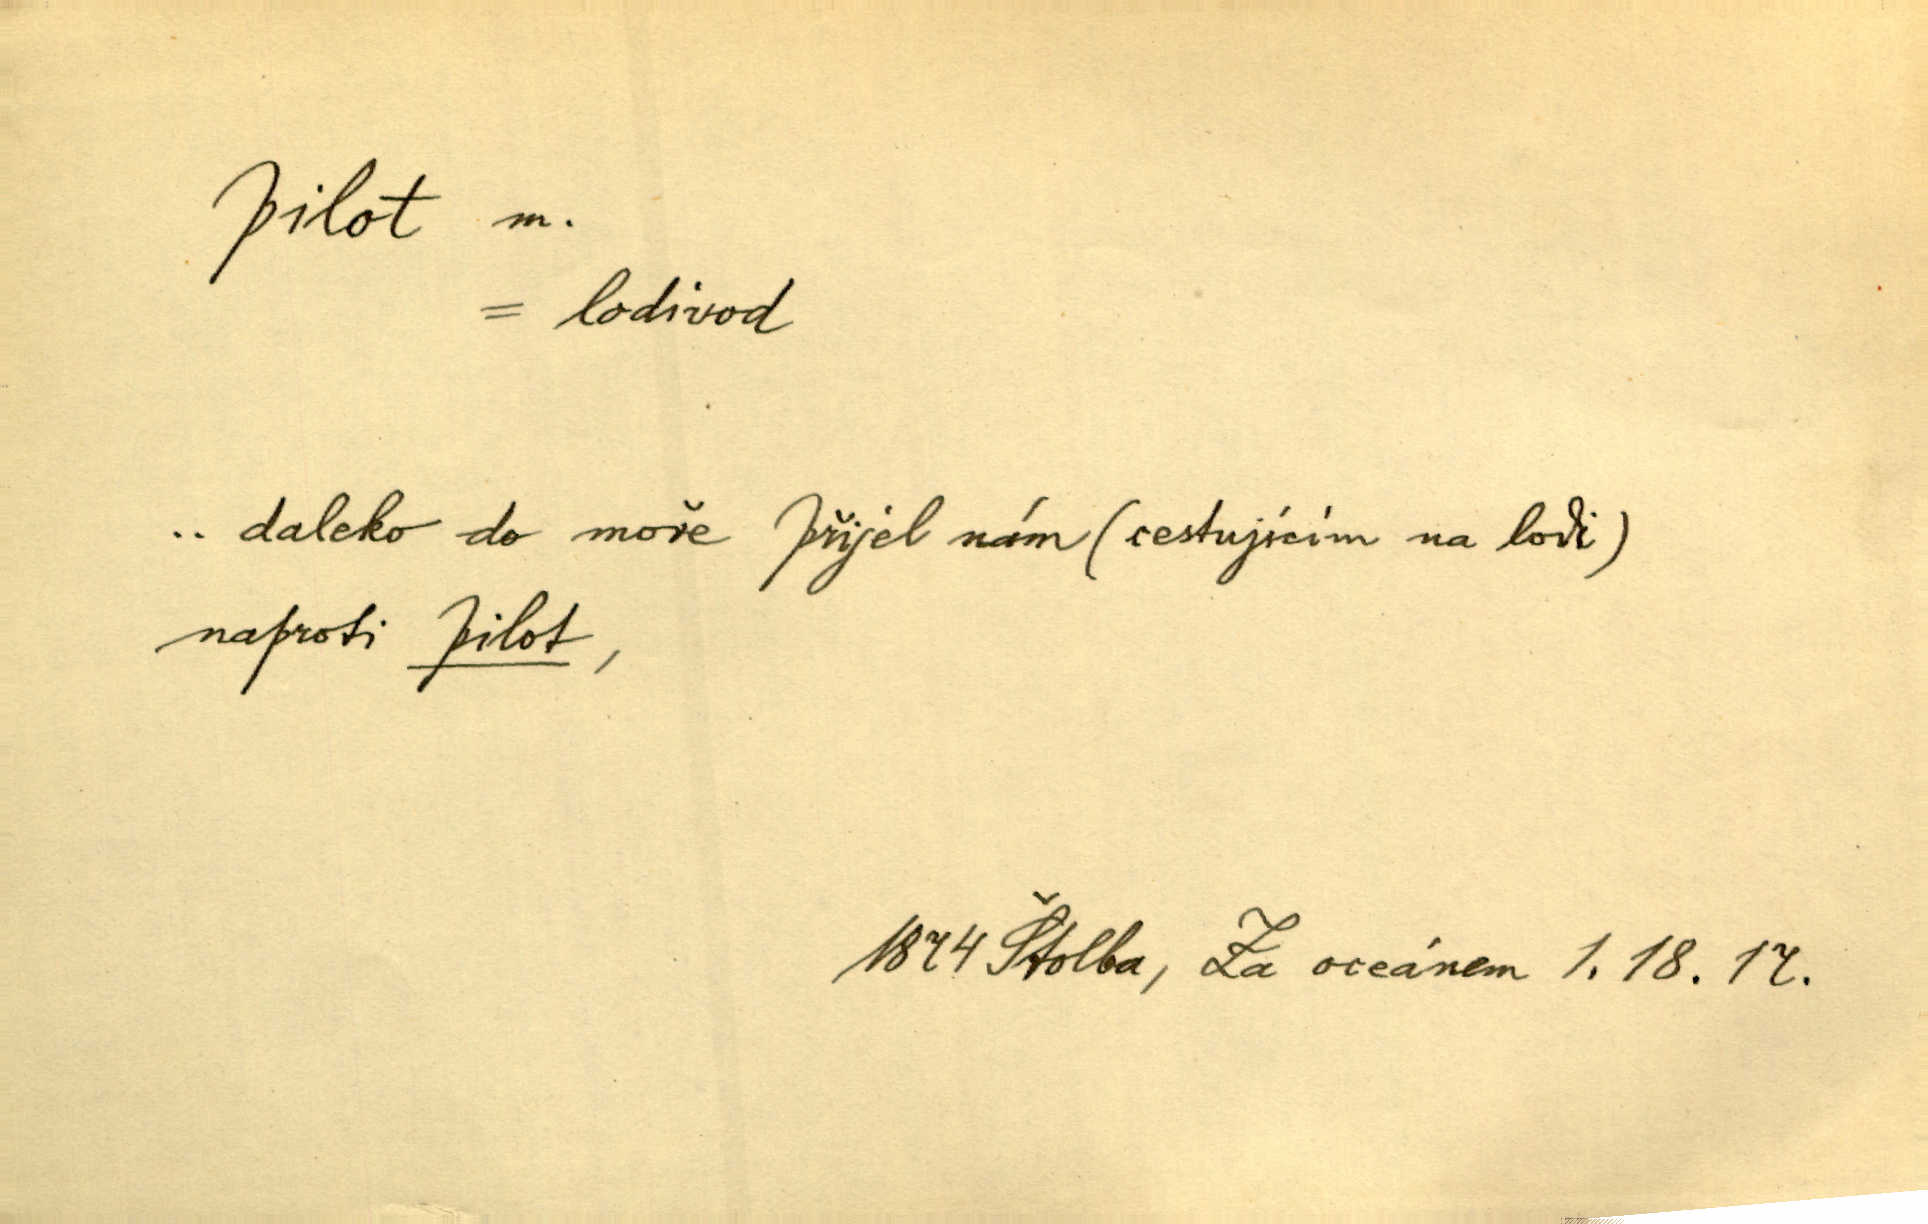 pilot m.
= lodivod
.. daleko do moře přijel nám (cestujícím na lodi)
naproti pilot,
1874 Štolba, Za oceánem 1. 18. 17.